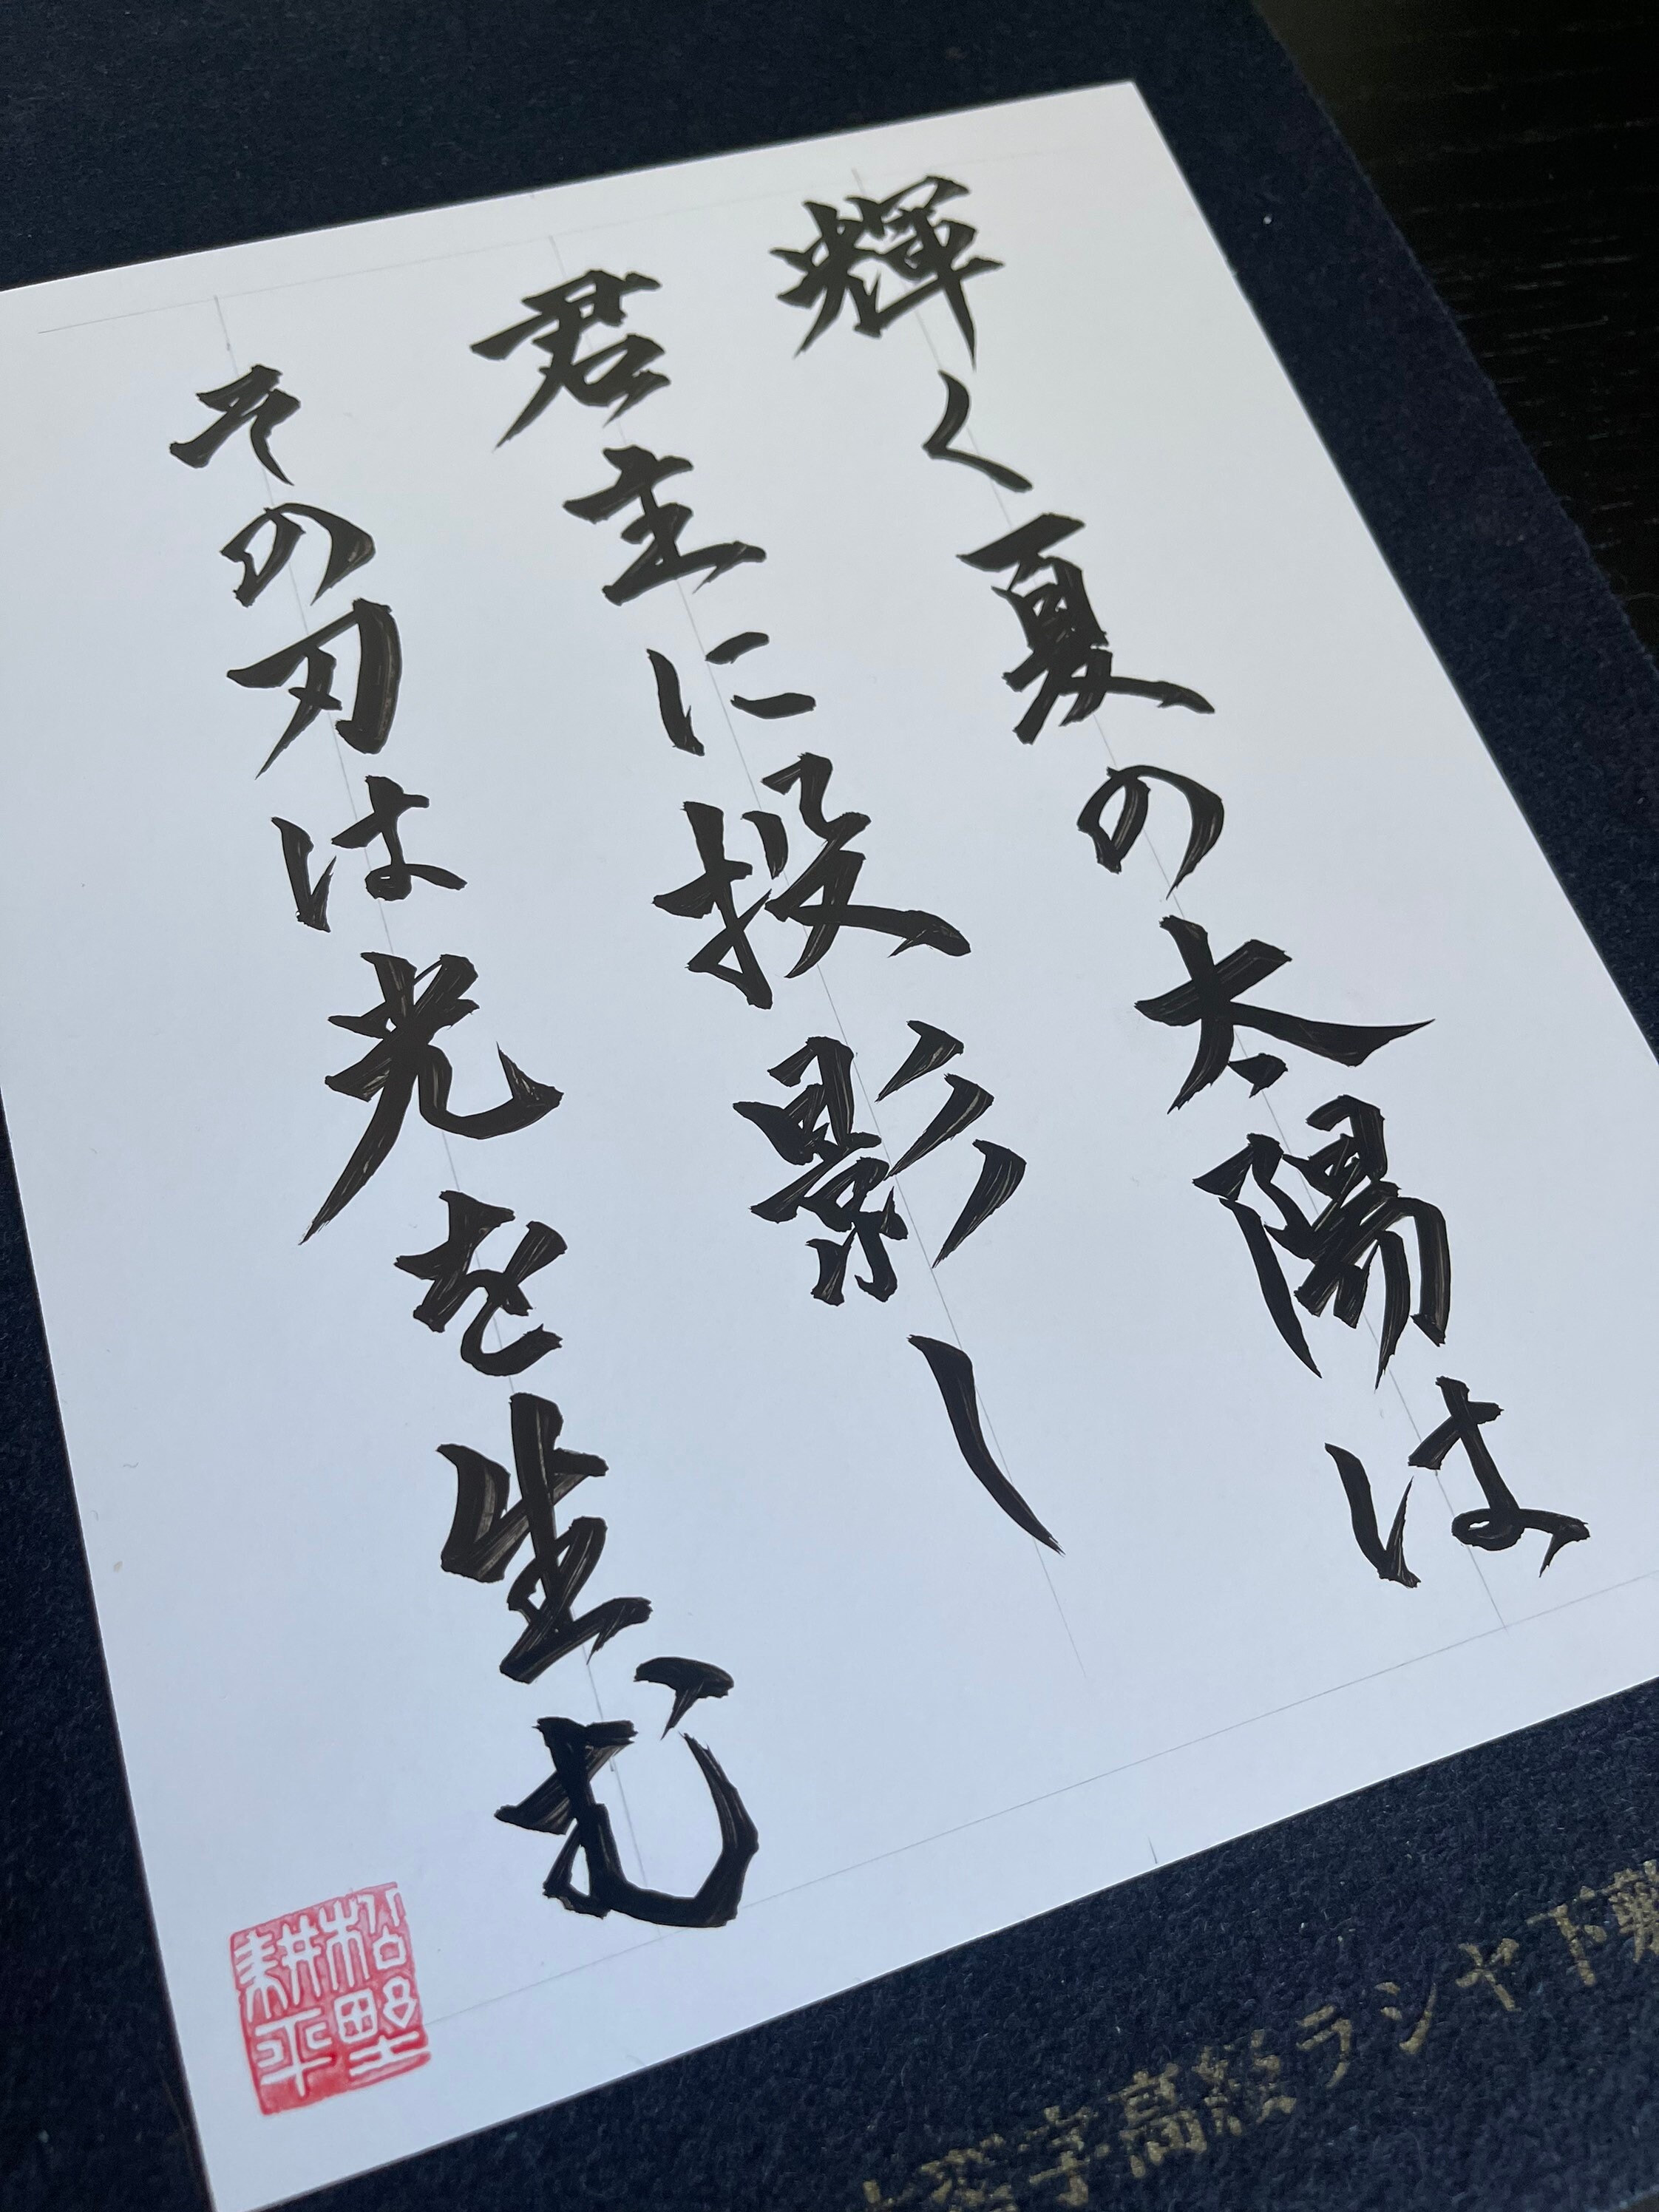 輝く夏の太陽は
君主に投影し
その刃は光を生む
松野
耕平
字高級ラシャ下敷